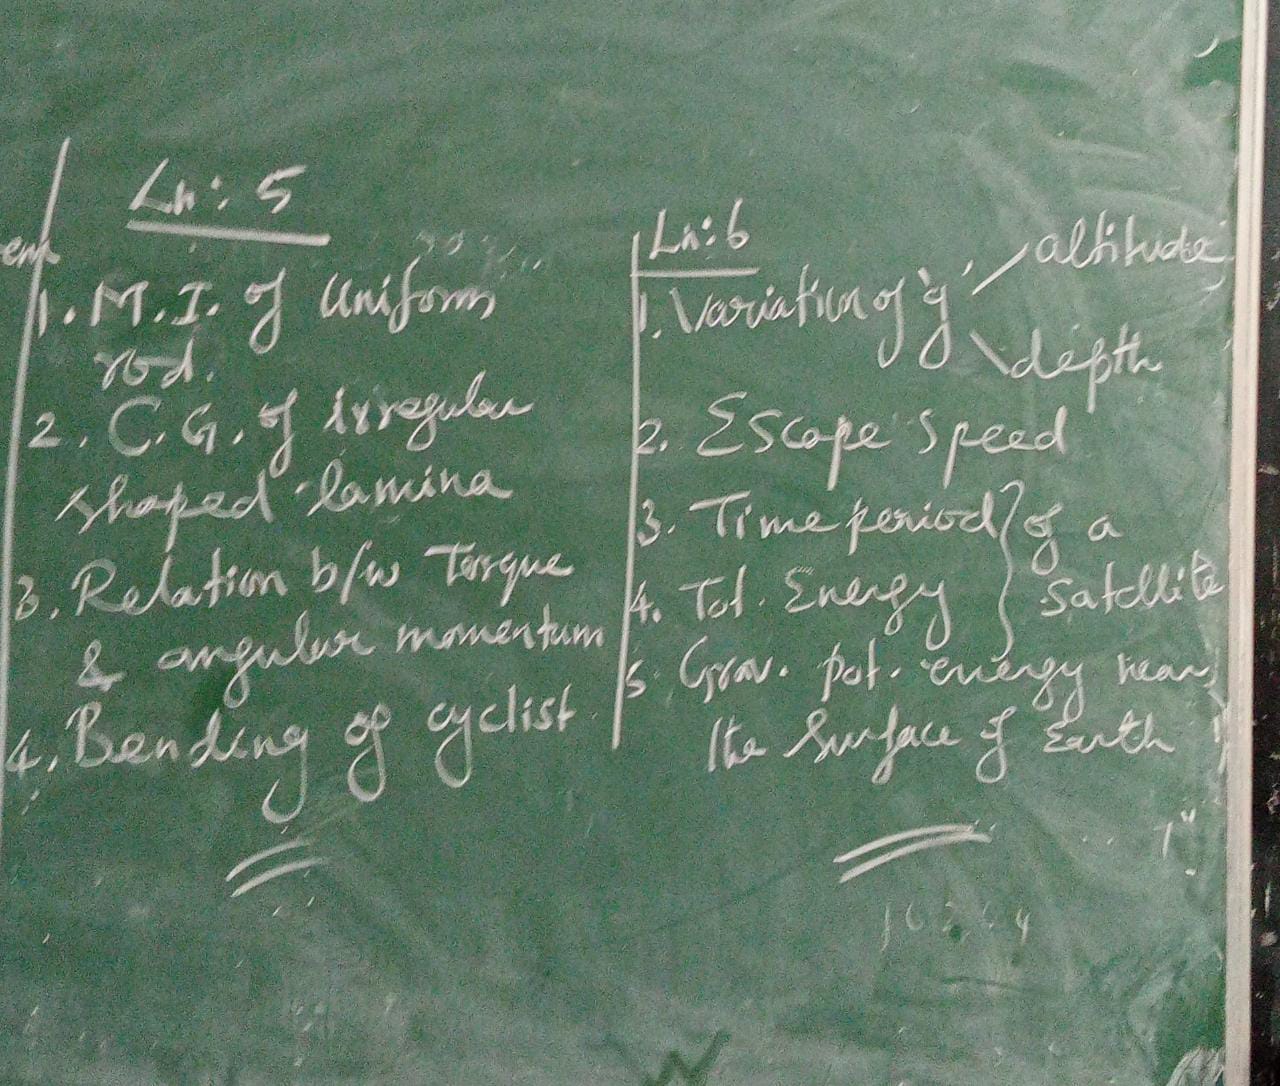 Ln: 5
1. M.I. of Uniform
rod.
2. C.G. of irregular
shaped lamina
3. Relation b/w Torque
& angular momentum
4. Bending of cyclist
Ln: 6
1. Variation of 'g' altitude
depth
2. Escape speed
3. Time period } of a
4. Tot. Energy } Satellite
5. Grav. pot. energy near
the Surface of Earth